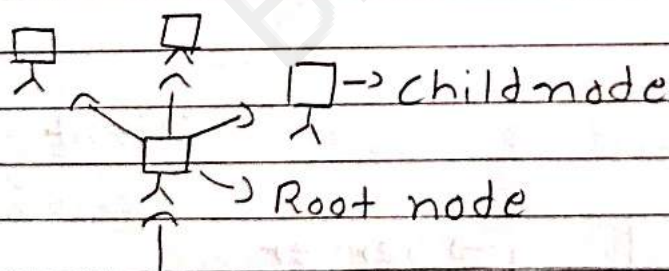 -> Child node
-> Root node